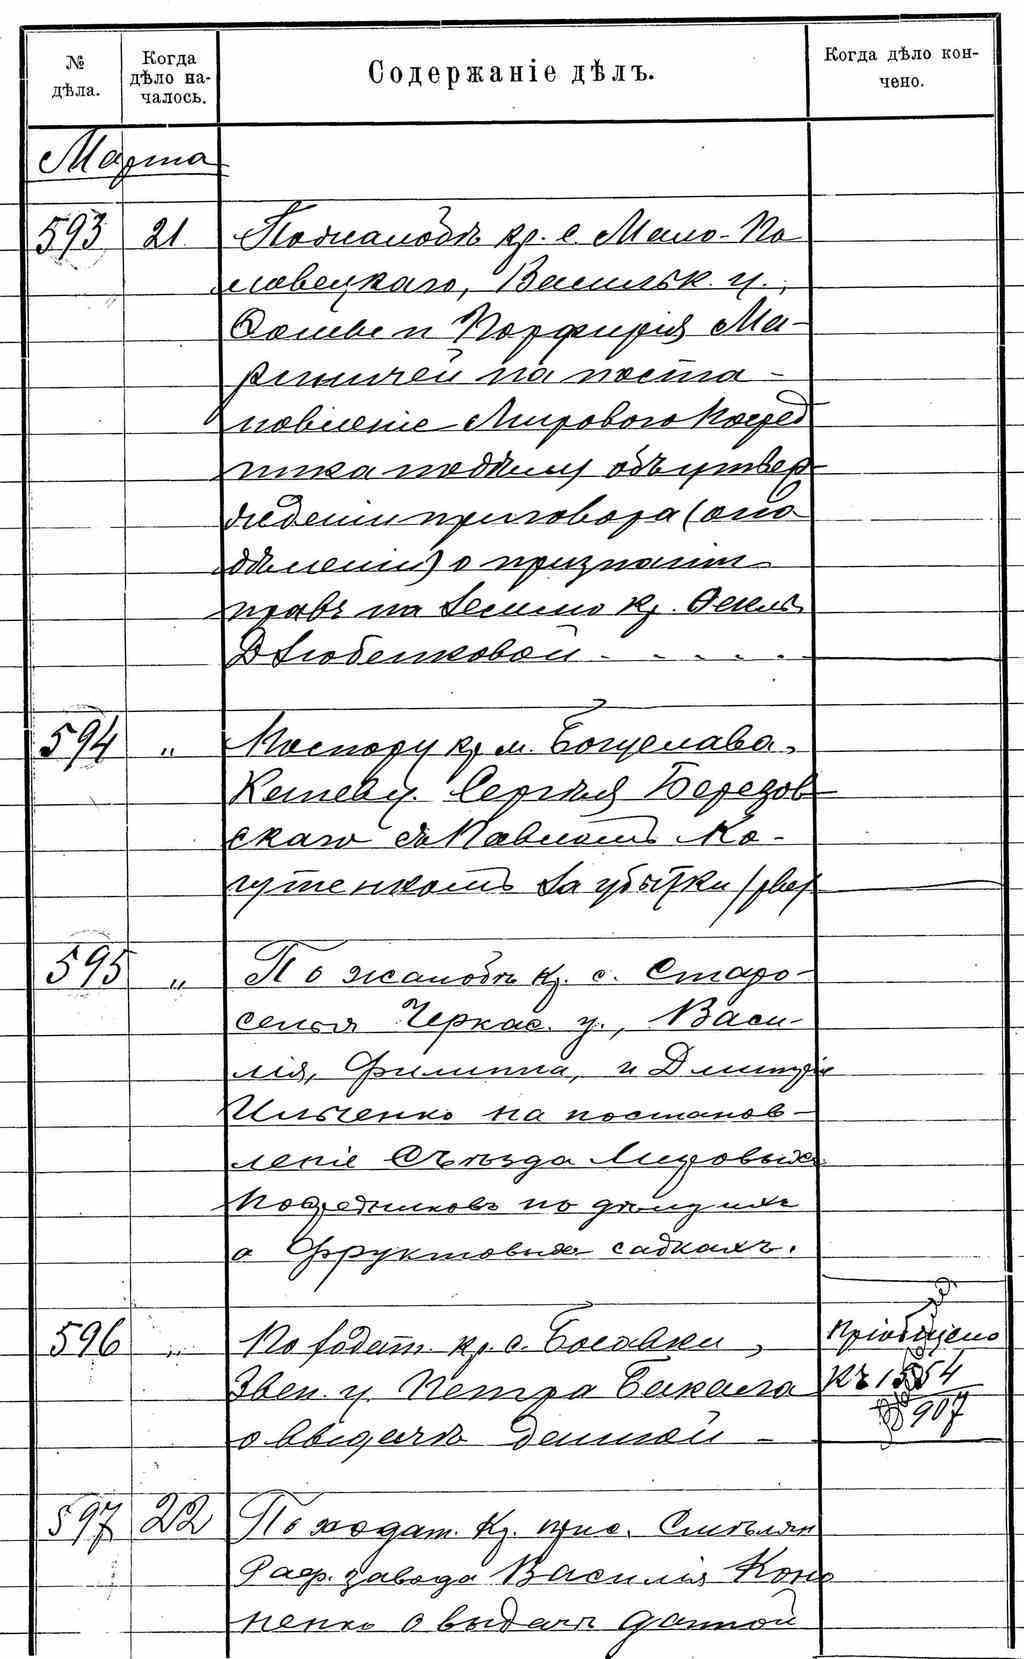 № дѣла.
Когда дѣло на-
чалось.
Содержаніе дѣлъ.
Когда дѣло кон-
чено.
Марта
593 21 По жалобѣ кр. с. Мало-По
ловецкаго, Васильк. у.,
и Порфирія Ма-
риничей на поста-
новленіе Мирового Посред
ника по дѣлу объ утвер-
жденіи приговора (
) о признаніи
правъ на землю кр. Феклѣ
Дзюбенковой
594 " По спору кр. м. Богуслава,
Каневу. Сергѣя Березов
скаго съ Павломъ Ко-
гутенкомъ за убытки
595 " По жалобѣ кр. с. Старо-
селья Черкас. у., Васи-
лія, Филиппа, и Дмитрія
Ильченко на постанов-
леніе Съѣзда Мировыхъ
Посредниковъ по дѣлу ихъ
о фруктовыхъ садкахъ.
596 " По ходат. кр. с. Босовки,
Звен. у. Петра Бакала
о выдачѣ данной -
Пріобщено
къ 1554
907
597 22 По ходат. кр. прис. Смѣлян
Раф. завода Василія Коно
ненко о выдачѣ данной